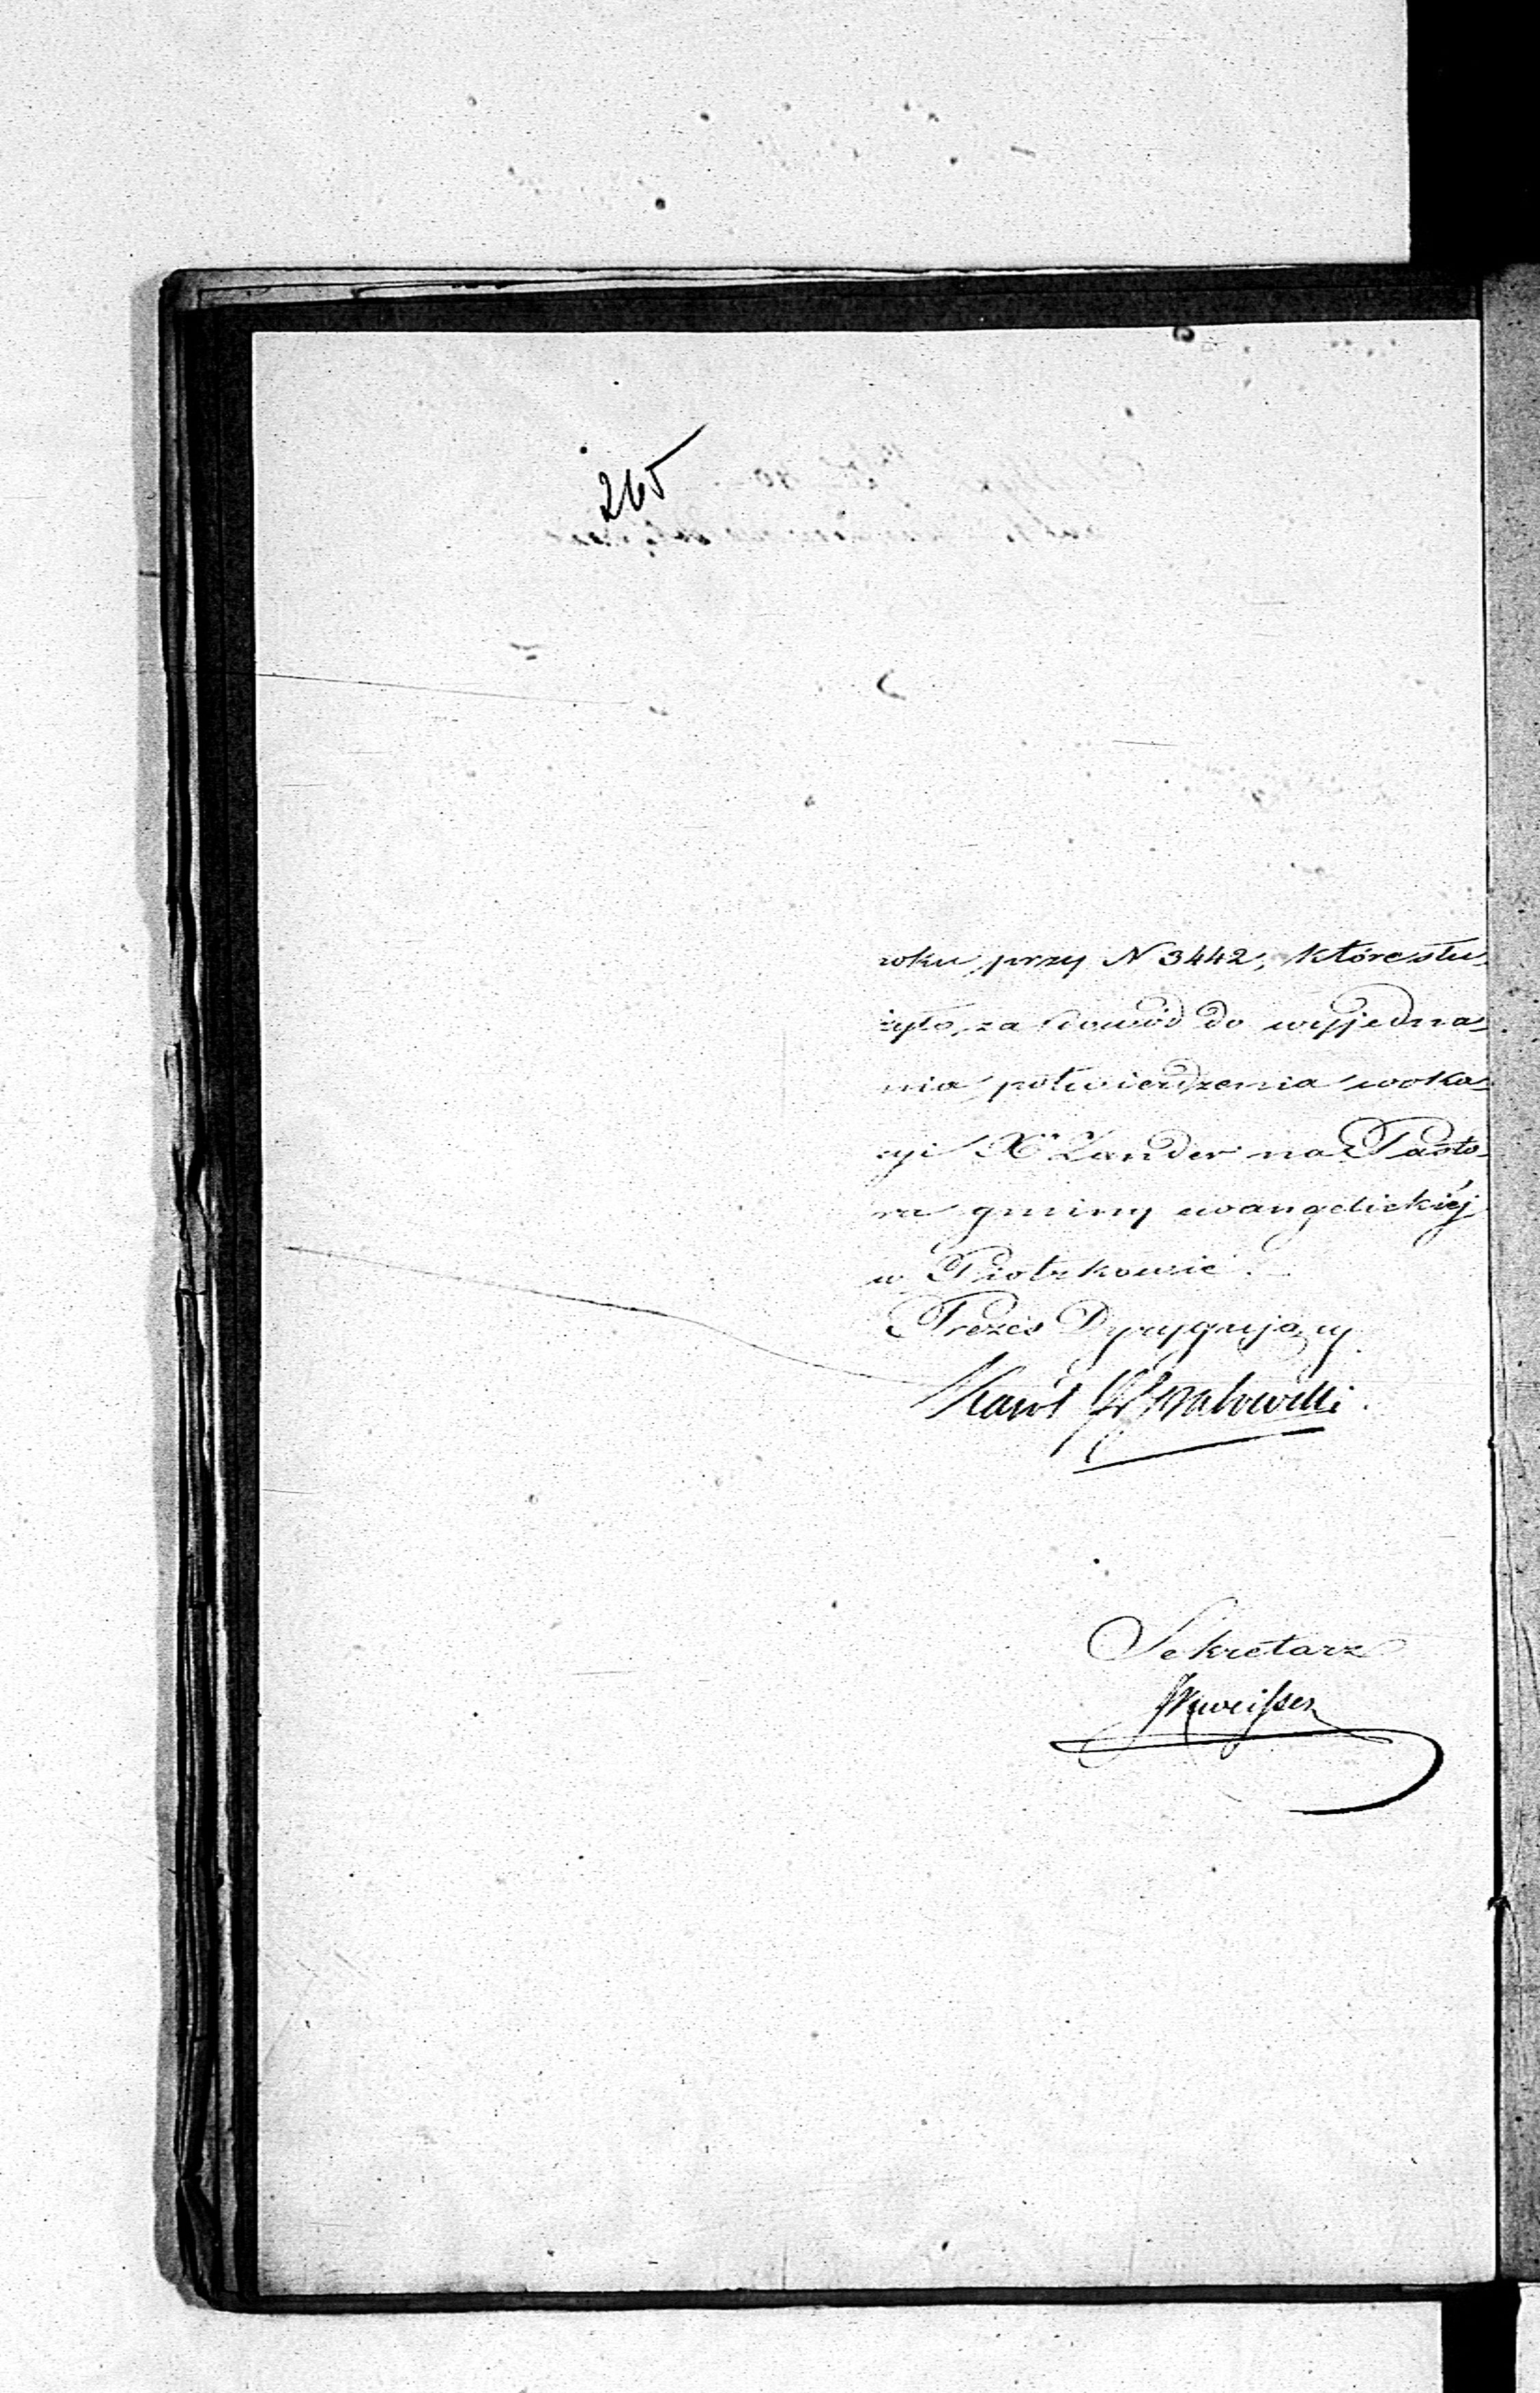 265
roku przy N 3442, które słu-
żyło, za dowód do wyjedna-
nia potwierdzenia woka-
cyi X. Zander na Pasto-
ra gminy ewangelickiéj
w Piotrkowie.
Prezes Dyrygujący
Karol
Sekretarz